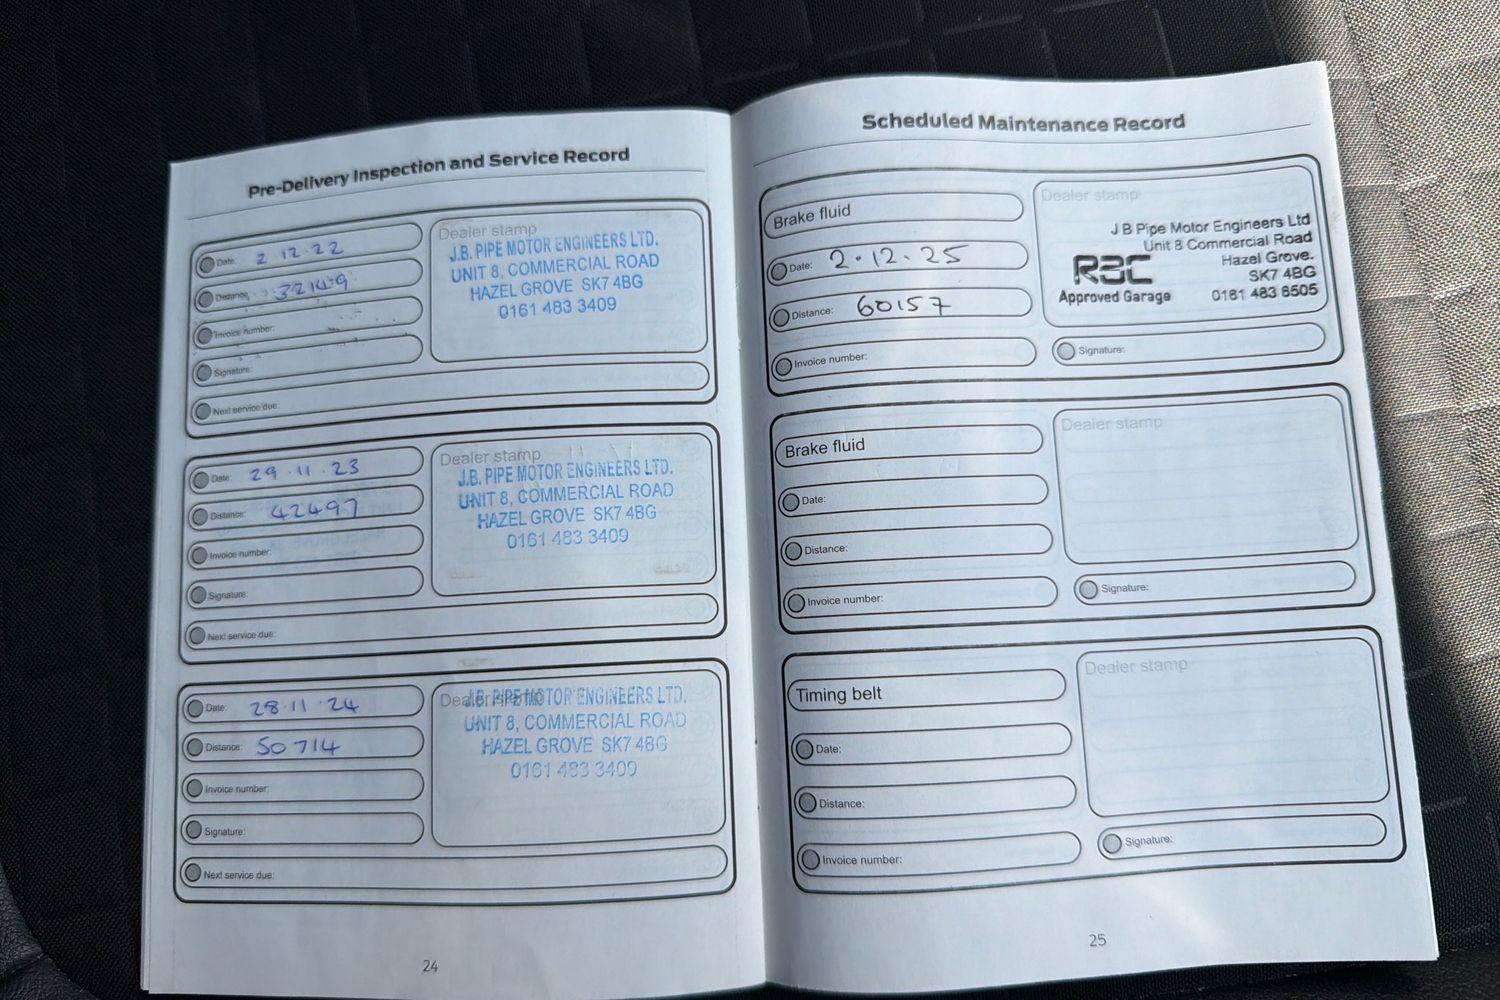 Pre-Delivery Inspection and Service Record
Date: 2.12.22
Distance: 32149
Invoice number:
Signature:
Next service due:
Dealer stamp
J.B. PIPE MOTOR ENGINEERS LTD.
UNIT 8, COMMERCIAL ROAD
HAZEL GROVE SK7 4BG
0161 483 3409
Date: 29.11.23
Distance: 42497
Invoice number:
Signature:
Next service due:
Dealer stamp
J.B. PIPE MOTOR ENGINEERS LTD.
UNIT 8, COMMERCIAL ROAD
HAZEL GROVE SK7 4BG
0161 483 3409
Date: 28.11.24
Distance: 50714
Invoice number:
Signature:
Next service due:
Dealer stamp
J.B. PIPE MOTOR ENGINEERS LTD.
UNIT 8, COMMERCIAL ROAD
HAZEL GROVE SK7 4BG
0161 483 3409
24
Scheduled Maintenance Record
Brake fluid
Date: 2.12.25
Distance: 60157
Invoice number:
Dealer stamp
J B Pipe Motor Engineers Ltd
Unit 8 Commercial Road
Hazel Grove.
SK7 4BG
0161 483 6505
RAC
Approved Garage
Signature:
Brake fluid
Date:
Distance:
Invoice number:
Dealer stamp
Signature:
Timing belt
Date:
Distance:
Invoice number:
Dealer stamp
Signature:
25